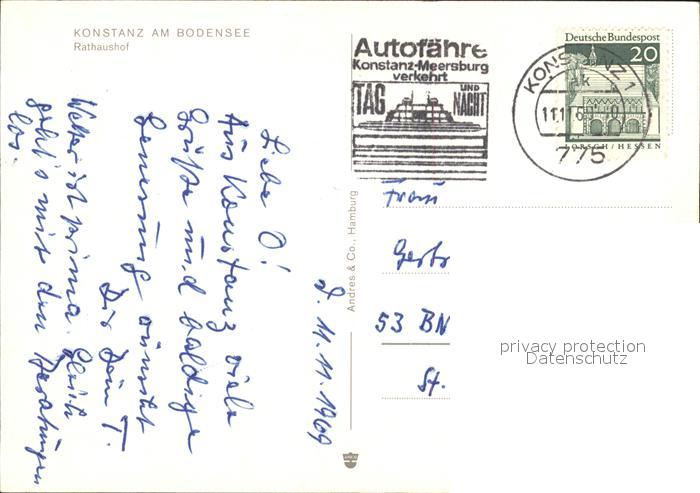 KONSTANZ AM BODENSEE
Rathaushof
Autofähre
Konstanz-Meersburg
verkehrt
TAG UND NACHT
KONSTANZ 1
11.11.69
775
Deutsche Bundespost
20
LORSCH/HESSEN
D. 11.11.1969
Liebe O!
Aus Konstanz viele
Grüße und baldige
Genesung wünscht
Dir Dein T.
Wetter ist prima. Gleich
geht's mit den Beratungen
los.
Andres & Co., Hamburg
Frau
53 BN
St.
privacy protection
Datenschutz